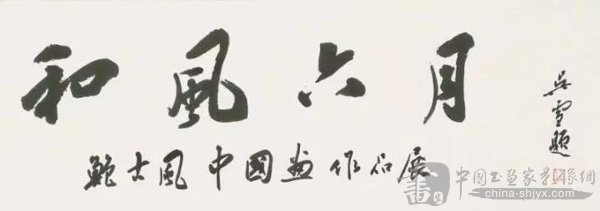 和風六月
鮑士風中國畫作品展
吳雪題
中國书画家影像網
www.china-shjyx.com